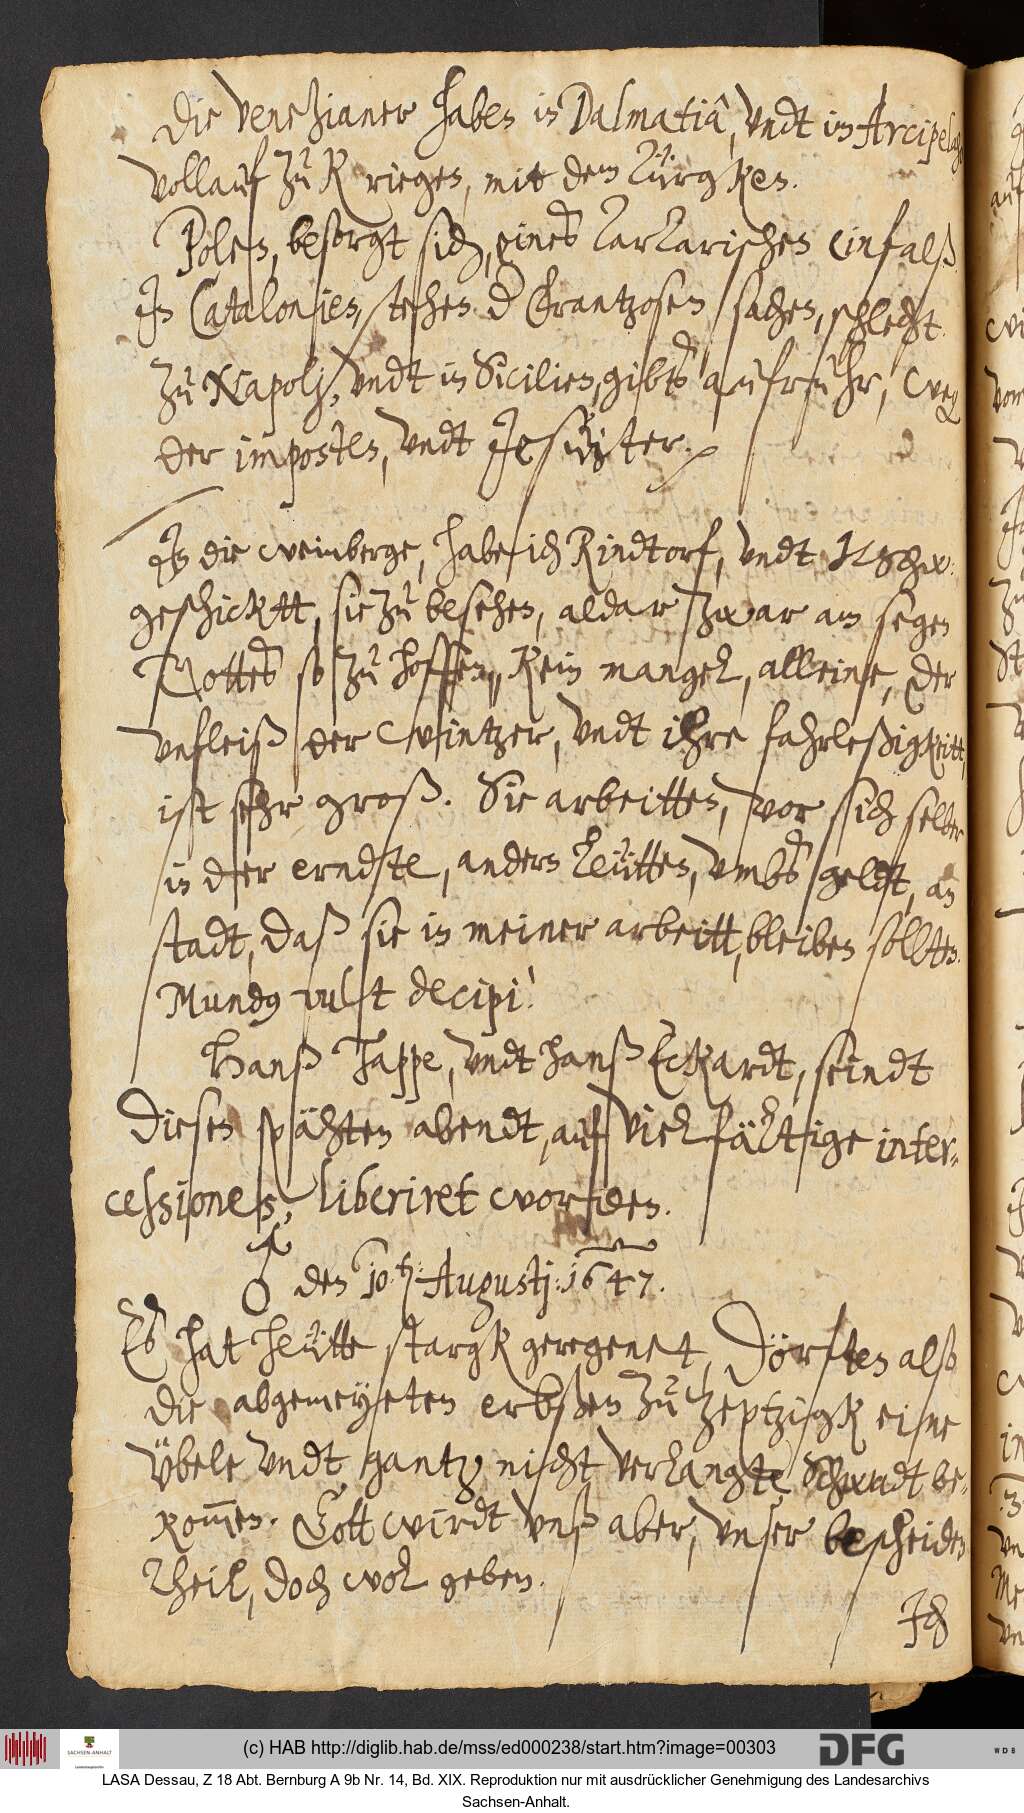 Die Venezianer haben in Dalmatiâ, vndt im Arcipelago
vollauf zu Kriegen, mit dem Türgken.
Polen, besorgt sich, eines Tartarischen einfalß
In Catalonien, stehen d Frantzosen sachen, schlecht.
Zu Napolj, vndt in Sicilien, gibts aufruhr, weg
der imposten, vndt Jesuiter.
In die weinberge, habe ich Rindtorf, vndt
geschicktt, sie zu besehen, aldar zwar am segen
Gottes so zu hoffen, kein mangel, alleine, der
vnfleiß der Wintzer, vndt ihre fahrleßigkeitt,
ist sehr groß. Sie arbeitten, vor sich selber
in der erndte, andern Leütten, vmbs geldt, an
stadt, daß sie in meiner arbeitt, bleiben sollten.
Mundus vult decipi!
Hanß Tappe, vndt Hanß Eckardt, seindt
diesen spähten abendt, auf vielfältige inter-
cessiones, liberiret worden.
♂ den 10. Augustj: 1647.
Es hat heütte stargk geregenet, Dörften also
die abgemeyeten erbßen zu Zeptzigk eine
vbele vndt gantz nicht verlangte Schwadt be-
kommen. Gott wirdt vnß aber, vnser bescheiden
theil, doch wol geben.
Ich
(c) HAB http://diglib.hab.de/mss/ed000238/start.htm?image=00303
SACHSEN-ANHALT
DFG
WDB
LASA Dessau, Z 18 Abt. Bernburg A 9b Nr. 14, Bd. XIX. Reproduktion nur mit ausdrücklicher Genehmigung des Landesarchivs
Sachsen-Anhalt.